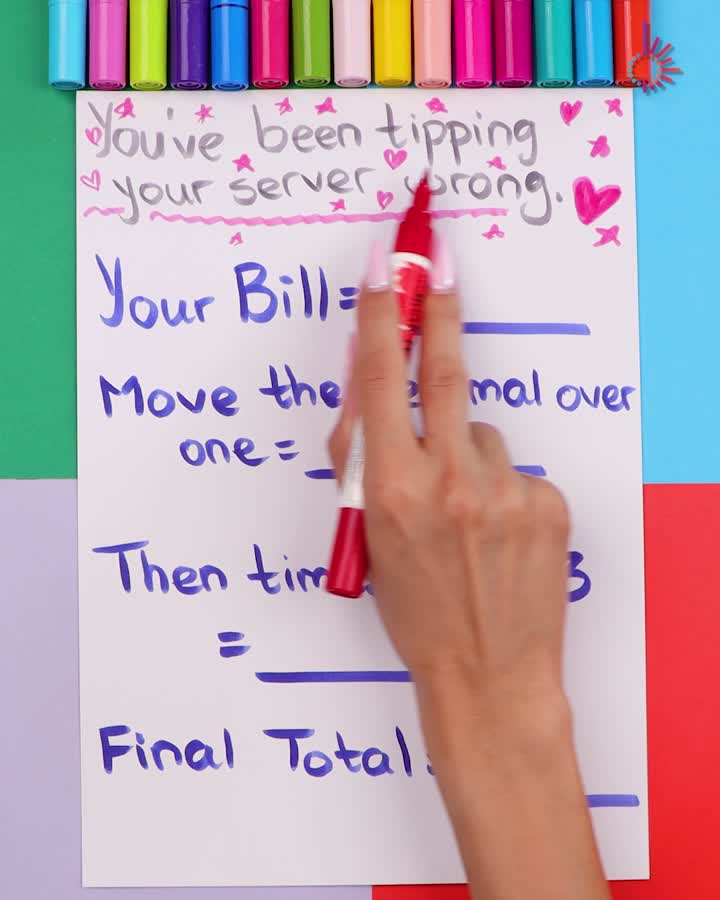 You've been tipping
your server wrong.
Your Bill=
Move the over
one=
Then 3
=
Final Total